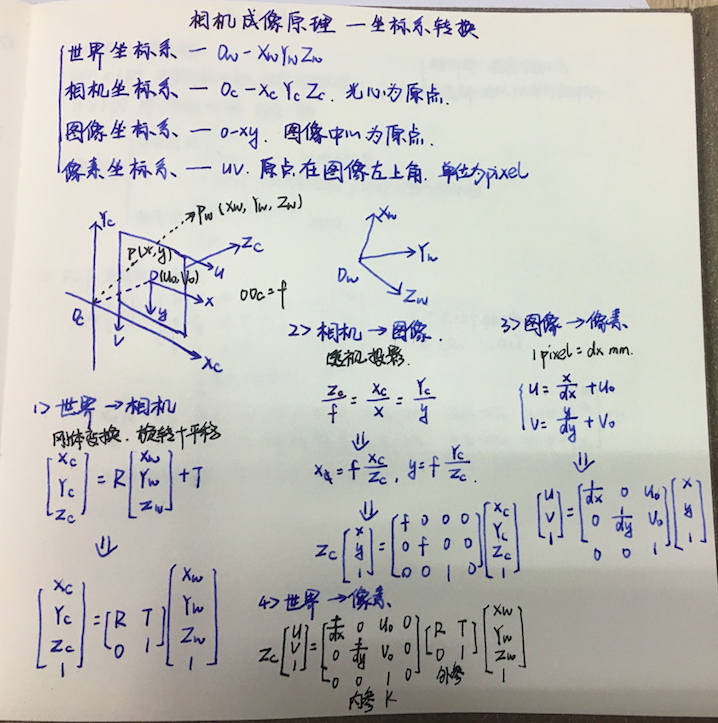 相机成像原理 — 坐标系转换
世界坐标系 — Ow - XwYwZw
相机坐标系 — Oc - XcYcZc. 光心为原点.
图像坐标系 — o-xy. 图像中心为原点.
像素坐标系 — uv. 原点在图像左上角. 单位为pixel
Yc
Pw (Xw, Yw, Zw)
P(x,y)
Zc
u
(u0, v0)
x
y
v
Oc
Xc
OOc = f
Xw
Yw
Ow
Zw
1> 世界 → 相机
刚体变换. 旋转+平移
[Xc Yc Zc] = R [Xw Yw Zw] + T
⇓
[Xc Yc Zc 1] = [R T 0 1] [Xw Yw Zw 1]
2> 相机 → 图像.
透视投影.
Zc/f = Xc/x = Yc/y
⇓
x = f Xc/Zc, y = f Yc/Zc.
⇓
Zc [x y 1] = [f 0 0 0 0 f 0 0 0 0 1 0] [Xc Yc Zc 1]
3> 图像 → 像素
1 pixel = dx mm.
u = x/dx + u0
v = y/dy + v0
⇓
[u v 1] = [1/dx 0 u0 0 1/dy v0 0 0 1] [x y 1]
4> 世界 → 像素
Zc [u v 1] = [f/dx 0 u0 0 0 f/dy v0 0 0 0 1 0] [R T 0 1] [Xw Yw Zw 1]
内参 K
外参